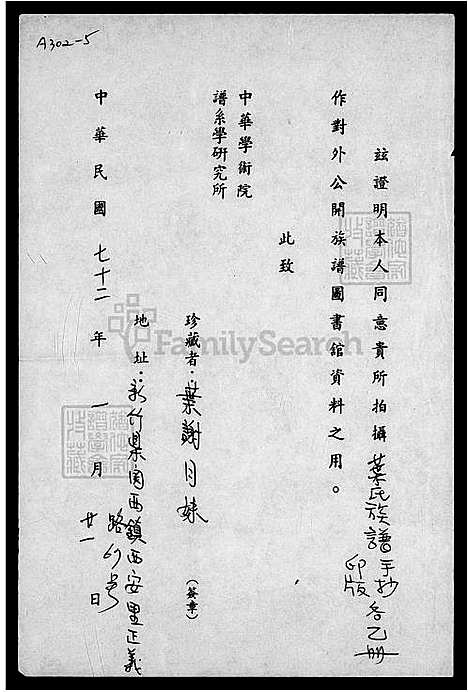 A302-5
玆證明本人同意貴所拍攝葉氏族譜手抄印版各乙冊
作對外公開族譜圖書館資料之用。
此致
中華學術院
譜系學研究所
珍藏者：葉謝月妹（簽章）
地址：新竹縣關西鎮西安里正義
路69号
中華民國七十二年一月廿一日
FamilySearch